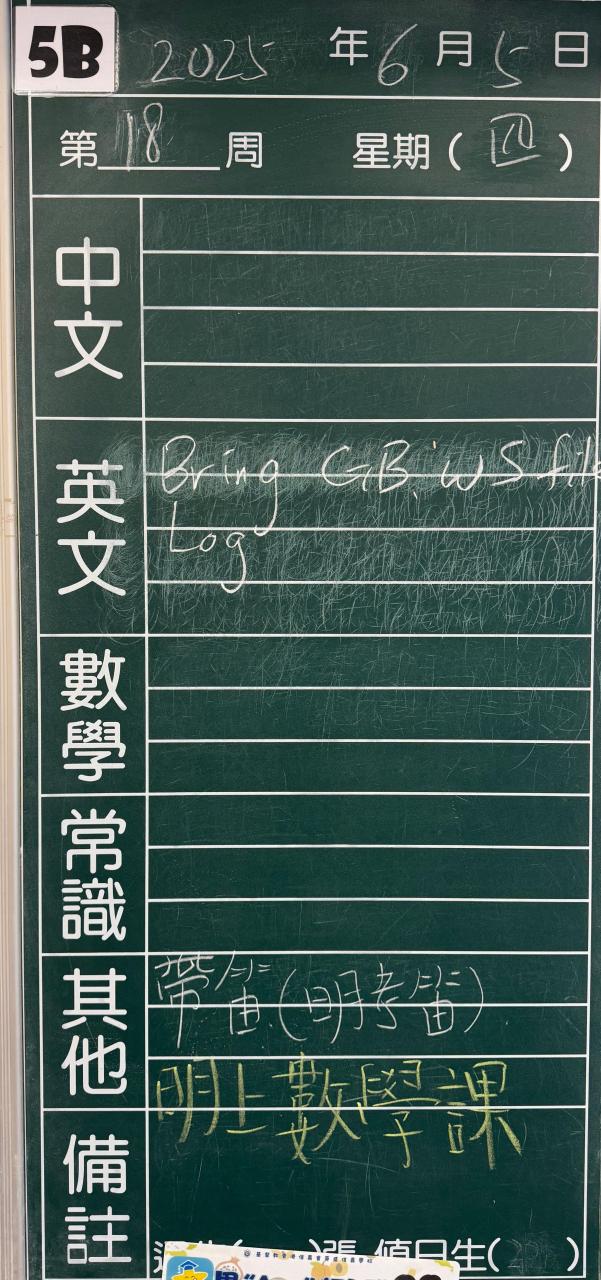 5B 2025 年 6 月 5 日
第 18 周 星期 ( 四 )
中文
英文
Bring GB, WS file
Log
數學
常識
其他
帶笛 (明考笛)
明上數學課
備註
張 值日生( )